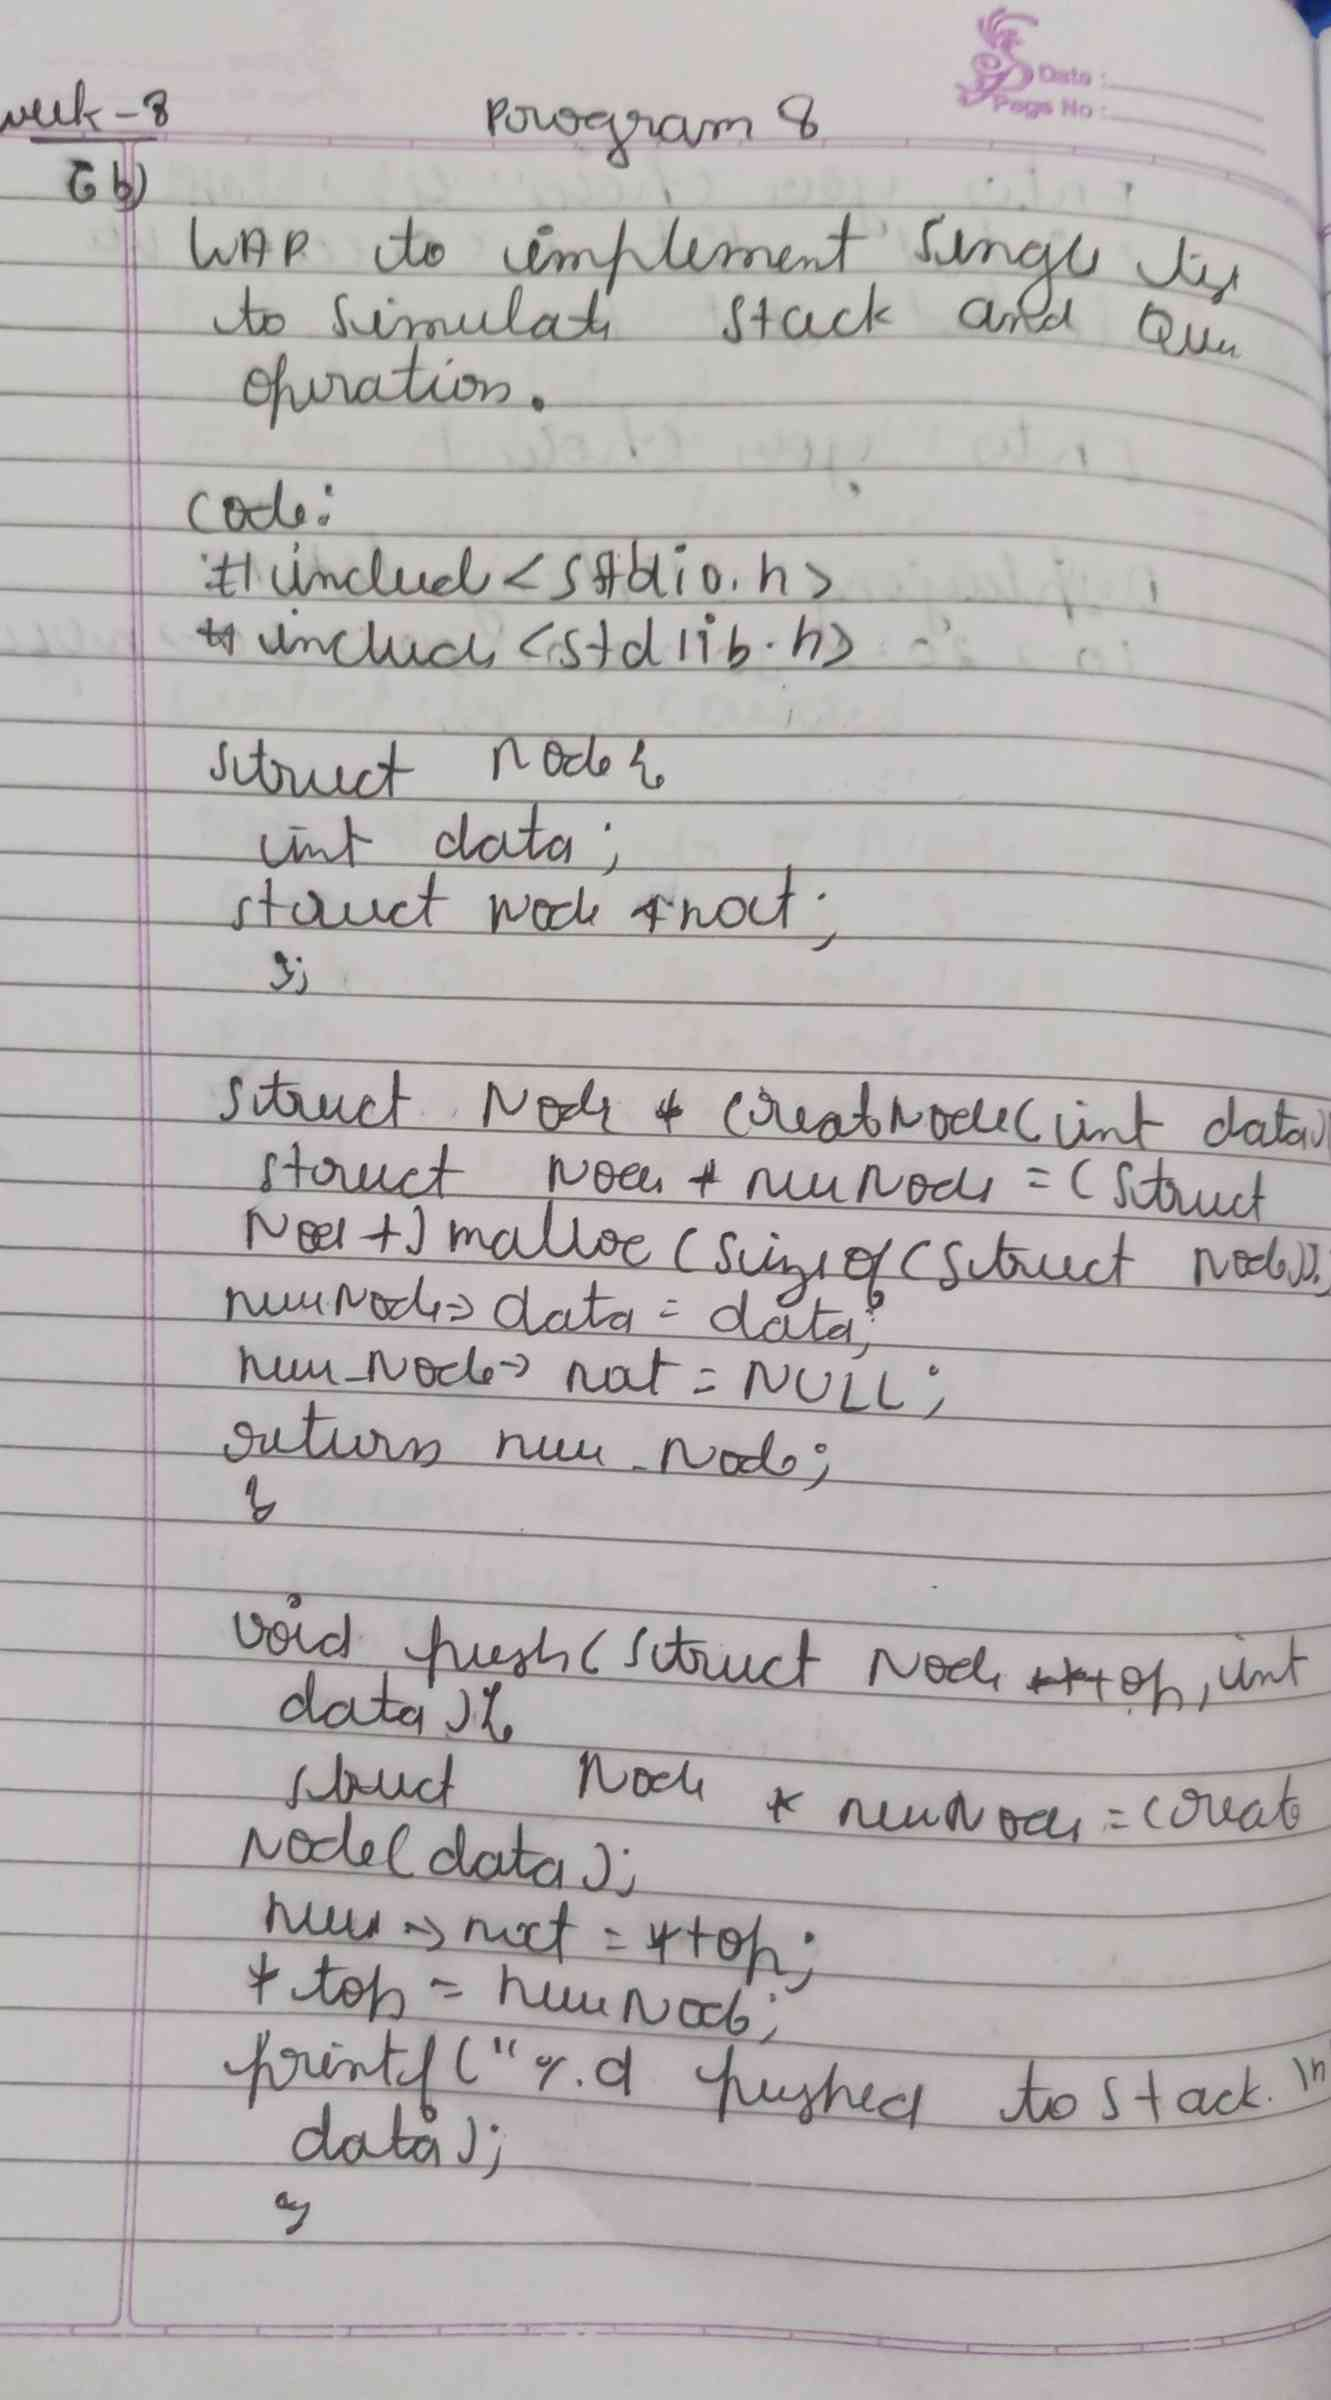 Date :
Page No :
week-8 Program 8
6 b)
WAP to implement Single
to simulate stack and
operation.
code:
#include<stdio.h>
#include<stdlib.h>
struct Node{
int data;
struct Node *next;
};
struct Node * CreateNode(int data)
struct Node * newNode = (struct
Node *) malloc (sizeof(struct Node));
newNode-> data = data;
new_Node-> next = NULL;
return new_Node;
}
void push(struct Node **top, int
data){
struct Node * newNode = create
Node(data);
new -> next = *top;
*top = newNode;
printf("%d pushed to stack.\n
data);
}